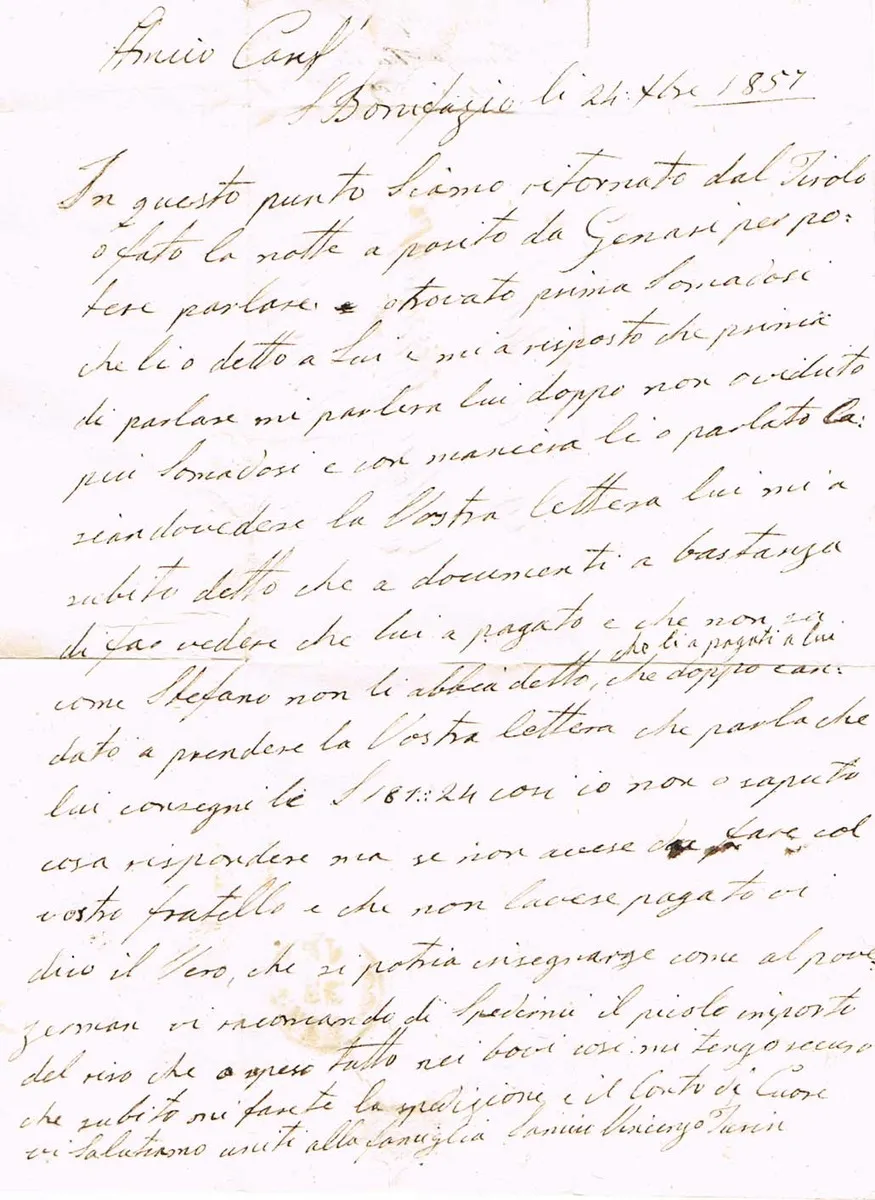 Amico Cariss
S Bonifazio li 24: Xbre 1857
In questo punto Siamo ritornato dal Tirolo
o fato la notte a posito da Genari per po:
tere parlare e otrovato prima Somadosi
che li o detto a Lui e mi a risposto che prima
di parlare mi parlera lui doppo non o veduto
piui Somadosi e con maniera li o parlato La:
siandovedere la Vostra lettera lui mi a
subito detto che a documenti a bastanza
di far vedere che lui a pagato e che non sa
come Stefano non li abbia detto, che li a pagati a lui che doppo e an:
dato a prendere la Vostra lettera che parla che
lui consegni le 187::24 cosi io non o saputo
cosa rispondere ma se non avese da fare col
vostro fratello e che non lavese pagato vi
dico il Vero, che si potria insegnarge come al pove:
german vi racomando di Spedirmi il picolo importo
del riso che o speso tutto nei bovi cosi mi tengo securo
che subito mi farete la spedizione e il Conto di Cuore
vi Salutiamo uniti alla famiglia Lamico Vincenzo Turin